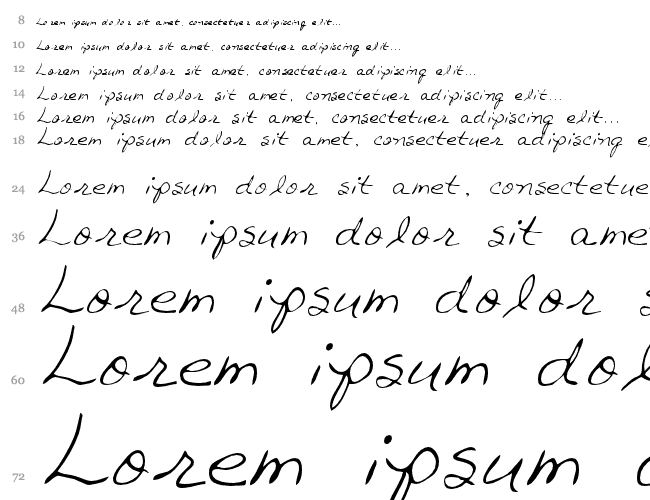 8 Lorem ipsum dolor sit amet, consectetuer adipiscing elit...
10 Lorem ipsum dolor sit amet, consectetuer adipiscing elit...
12 Lorem ipsum dolor sit amet, consectetuer adipiscing elit...
14 Lorem ipsum dolor sit amet, consectetuer adipiscing elit...
16 Lorem ipsum dolor sit amet, consectetuer adipiscing elit...
18 Lorem ipsum dolor sit amet, consectetuer adipiscing e
24 Lorem ipsum dolor sit amet, consectetue
36 Lorem ipsum dolor sit ame
48 Lorem ipsum dolor s
60 Lorem ipsum dol
72 Lorem ipsum d